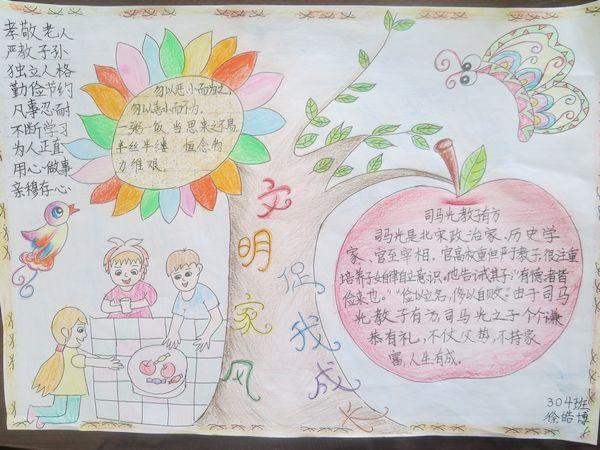 孝敬老人
严教子孙
独立人格
勤俭节约
凡事忍耐
不断学习
为人正直
用心做事
亲穆存心
勿以恶小而为之,
勿以善小而不为。
一粥一饭,当思来之不易
半丝半缕 恒念物
力维艰。
文明家风
促我成长
司马光教子有方
司马光是北宋政治家、历史学
家、官至宰相。官高权重但严于教子,很注重
培养子女自律自立意识。他告诫其子:“有德者皆
俭来也。”“俭以立名,侈以自败”由于司马
光教子有方,司马光之子个个谦
恭有礼,不仗父势,不持家
富,人生有成。
304班
徐皓博